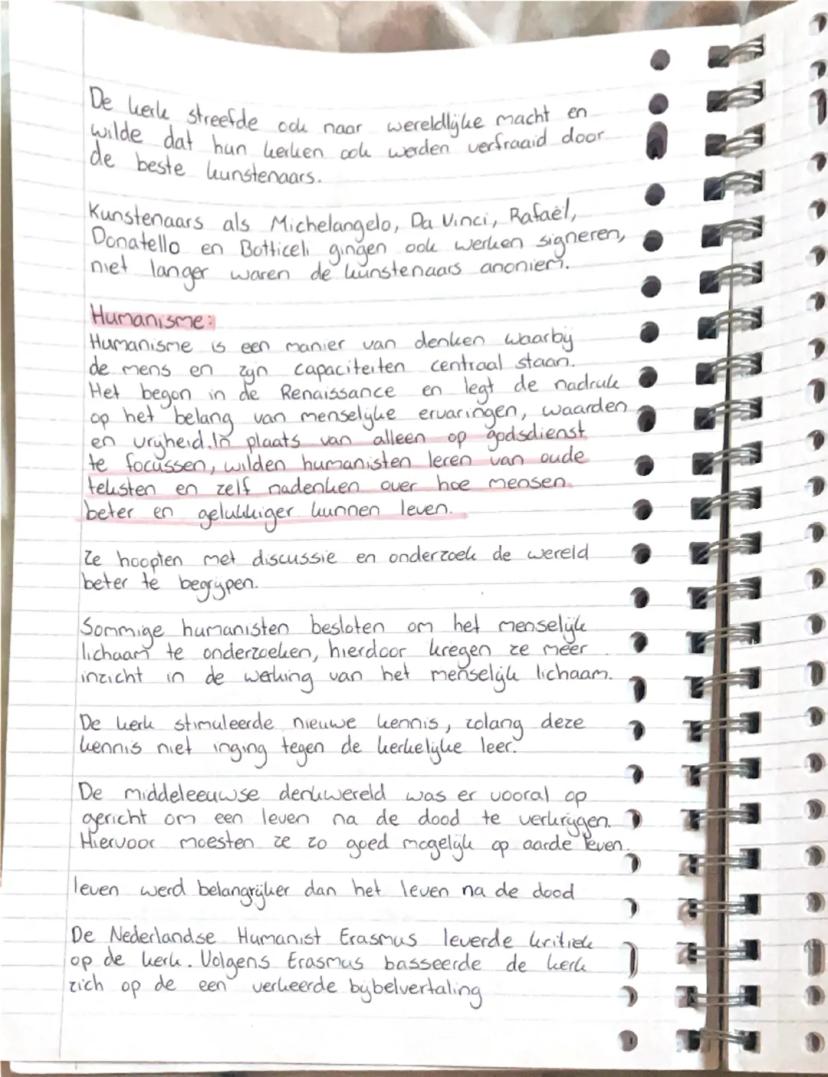 De kerk streefde ook naar wereldlijke macht en
wilde dat hun kerken ook werden verfraaid door
de beste kunstenaars.
Kunstenaars als Michelangelo, Da Vinci, Rafaël,
Donatello en Botticeli gingen ook werken signeren,
niet langer waren de kunstenaars anoniem.
Humanisme:
Humanisme is een manier van denken waarbij
de mens en zijn capaciteiten centraal staan.
Het begon in de Renaissance en legt de nadruk
op het belang van menselijke ervaringen, waarden
en vrijheid. In plaats van alleen op godsdienst
te focussen, wilden humanisten leren van oude
teksten en zelf nadenken over hoe mensen
beter en gelukkiger kunnen leven.
Ze hoopten met discussie en onderzoek de wereld
beter te begrijpen.
Sommige humanisten besloten om het menselijk
lichaam te onderzoeken, hierdoor kregen ze meer
inzicht in de werking van het menselijk lichaam.
De kerk stimuleerde nieuwe kennis, zolang deze
kennis niet inging tegen de kerkelijke leer.
De middeleeuwse denkwereld was er vooral op
gericht om een leven na de dood te verkrijgen.
Hiervoor moesten ze zo goed mogelijk op aarde leven.
leven werd belangrijker dan het leven na de dood
De Nederlandse Humanist Erasmus leverde kritiek
op de kerk. Volgens Erasmus basseerde de kerk
zich op de een verkeerde bijbelvertaling